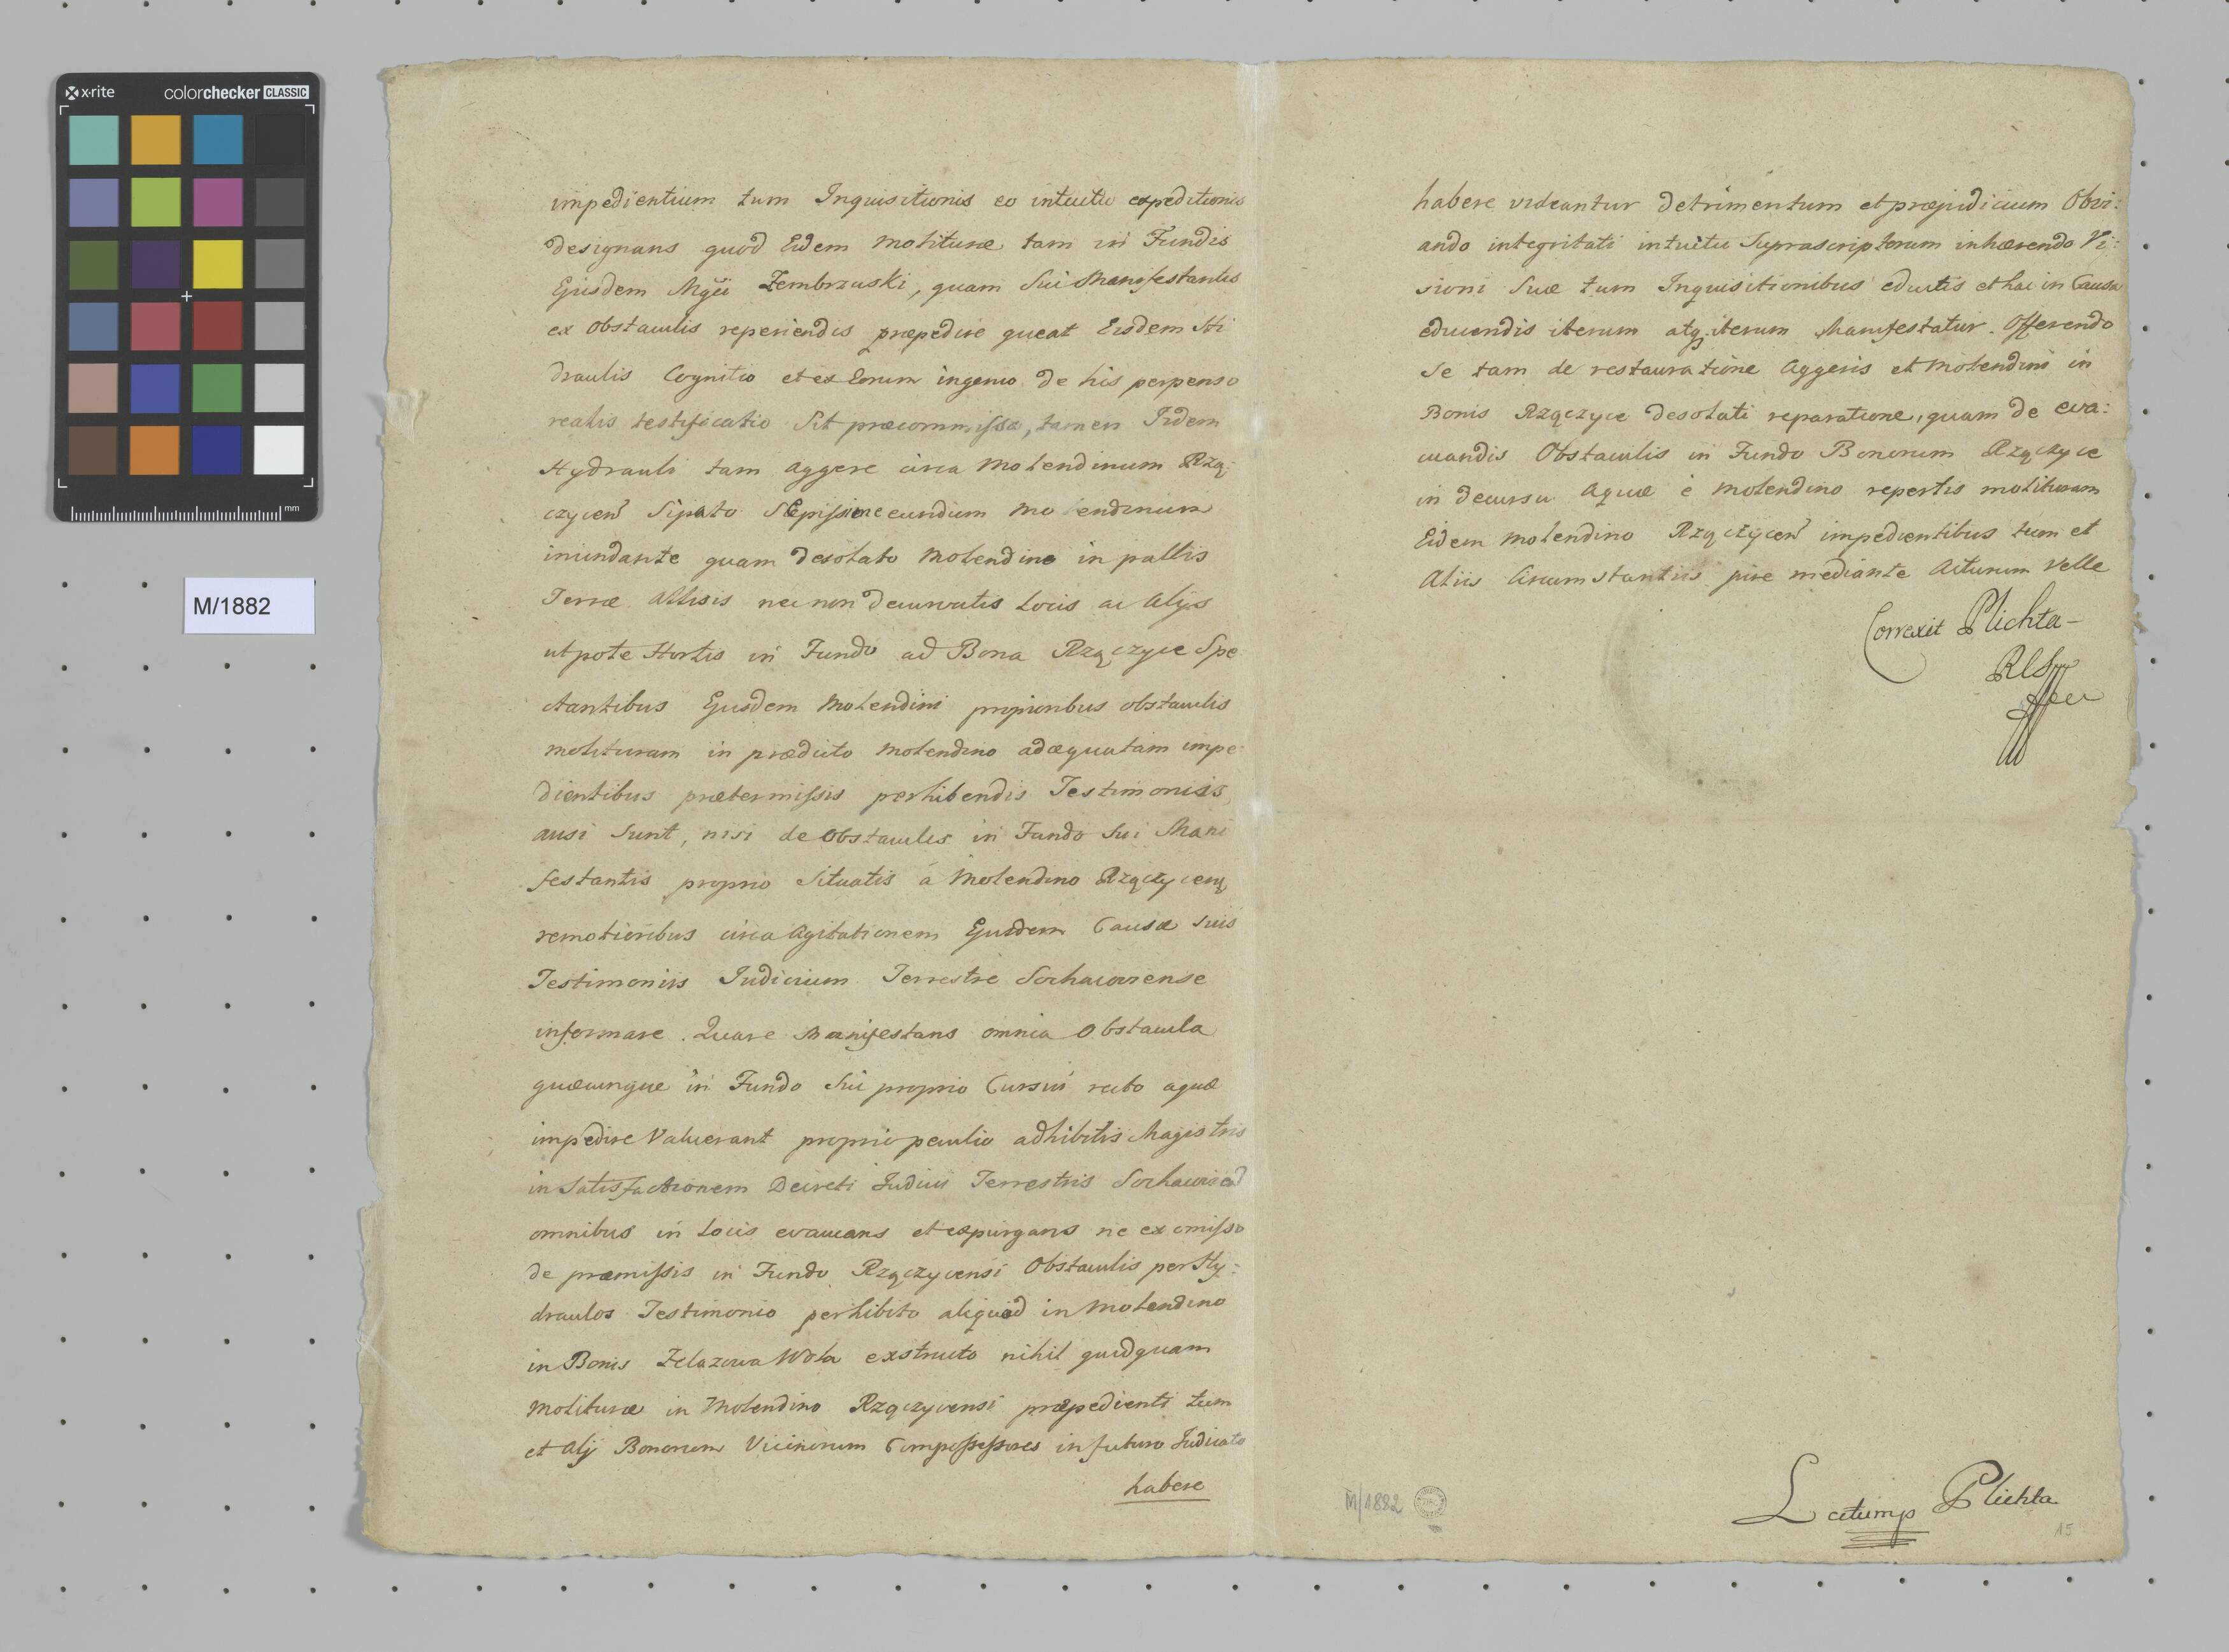 x-rite colorchecker CLASSIC
mm
M/1882
impedientium tum Inquisitionis eo intuitu expeditionis
designans quod Eidem molituræ tam in Fundis
Ejusdem Mgci Zembrzuski, quam Sui Manifestantis
ex obstaculis reperiendis præpedire queat Eisdem Hi
draulis Cognitio et ex Eorum ingenio de his perpenso
realis testificatio Sit præcommissa, tamen Iidem
Hydrauli tam aggere circa molendinum Rzą:
czycen Sipato Sæpissime eundem molendinum
inundante quam desolato molendino in pallis
Terræ Allisis nec non decurvatis Locis ac Alijs
utpote Hortis in Fundo ad Bona Rzączyce Spe
ctantibus Ejusdem Molendini propioribus obstaculis
molituram in prædicto molendino adæquatam impe:
dientibus prætermissis perhibendis Testimoniis
ausi Sunt, nisi de obstaculis in Fundo Sui Mani
festantis proprio Situatis á Molendino Rzączycen
remotioribus circa Agitationem Ejusdem Causæ suis
Testimoniis Judicium Terrestre Sochacoviense
informare. Quare Manifestans omnia obstacula
quæcunque in Fundo Sui proprio Cursui recto aquæ
impedire Valuerant proprio peculio adhibitis Magistris
in Satisfactionem Decreti Judicii Terrestris Sochacovien
omnibus in Locis evacuans et expurgans ne ex omisso
de præmissis in Fundo Rzączycensi Obstaculis per Hy:
draulos Testimonio perhibito aliquod in molendino
in Bonis Zelazowa Wola exstructo nihil quidquam
Molituræ in Molendino Rzączycensi præpedienti tum
et Alij Bonorum Vicinorum Compossessores in futuro Judicato
habere
habere videantur detrimentum et præjudicium Obvi:
ando integritati intuitu Suprascriptorum inhærendo Vi:
sioni Suæ tum Inquisitionibus eductis et hac in Causa
educendis iterum atq iterum Manifestatur. Offerendo
Se tam de restauratione Aggeris et Molendini in
Bonis Rzączyce desolati reparatione, quam de eva:
cuandis Obstaculis in Fundo Bonorum Rzączyce
in decursu Aquæ è Molendino repertis molituram
Eidem molendino Rzączycen impedientibus tum et
Aliis Circumstantiis jure mediante Acturum Velle
Correxit Plichta
M/1882
Plichta
15